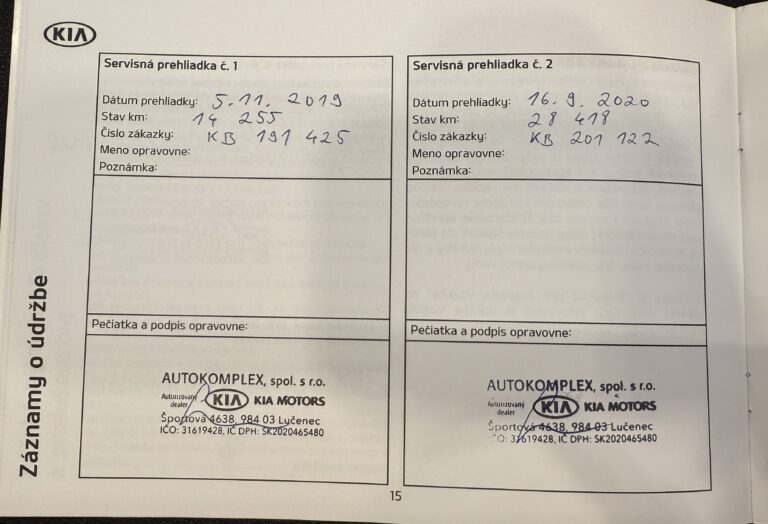 KIA
Servisná prehliadka č. 1
Dátum prehliadky: 5.11. 2019
Stav km: 14 255
Číslo zákazky: KB 191 425
Meno opravovne:
Poznámka:
Pečiatka a podpis opravovne:
AUTOKOMPLEX, spol. s r.o.
Autorizovaný dealer KIA KIA MOTORS
Športová 4638, 984 03 Lučenec
IČO: 31619428, IČ DPH: SK2020465480
Servisná prehliadka č. 2
Dátum prehliadky: 16.9. 2020
Stav km: 28 418
Číslo zákazky: KB 201 122
Meno opravovne:
Poznámka:
Pečiatka a podpis opravovne:
AUTOKOMPLEX, spol. s r.o.
Autorizovaný dealer KIA KIA MOTORS
Športová 4638, 984 03 Lučenec
IČO: 31619428, IČ DPH: SK2020465480
Záznamy o údržbe
15